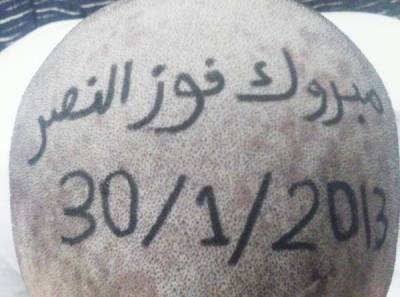 مبروك فوز النصر
30/1/2013